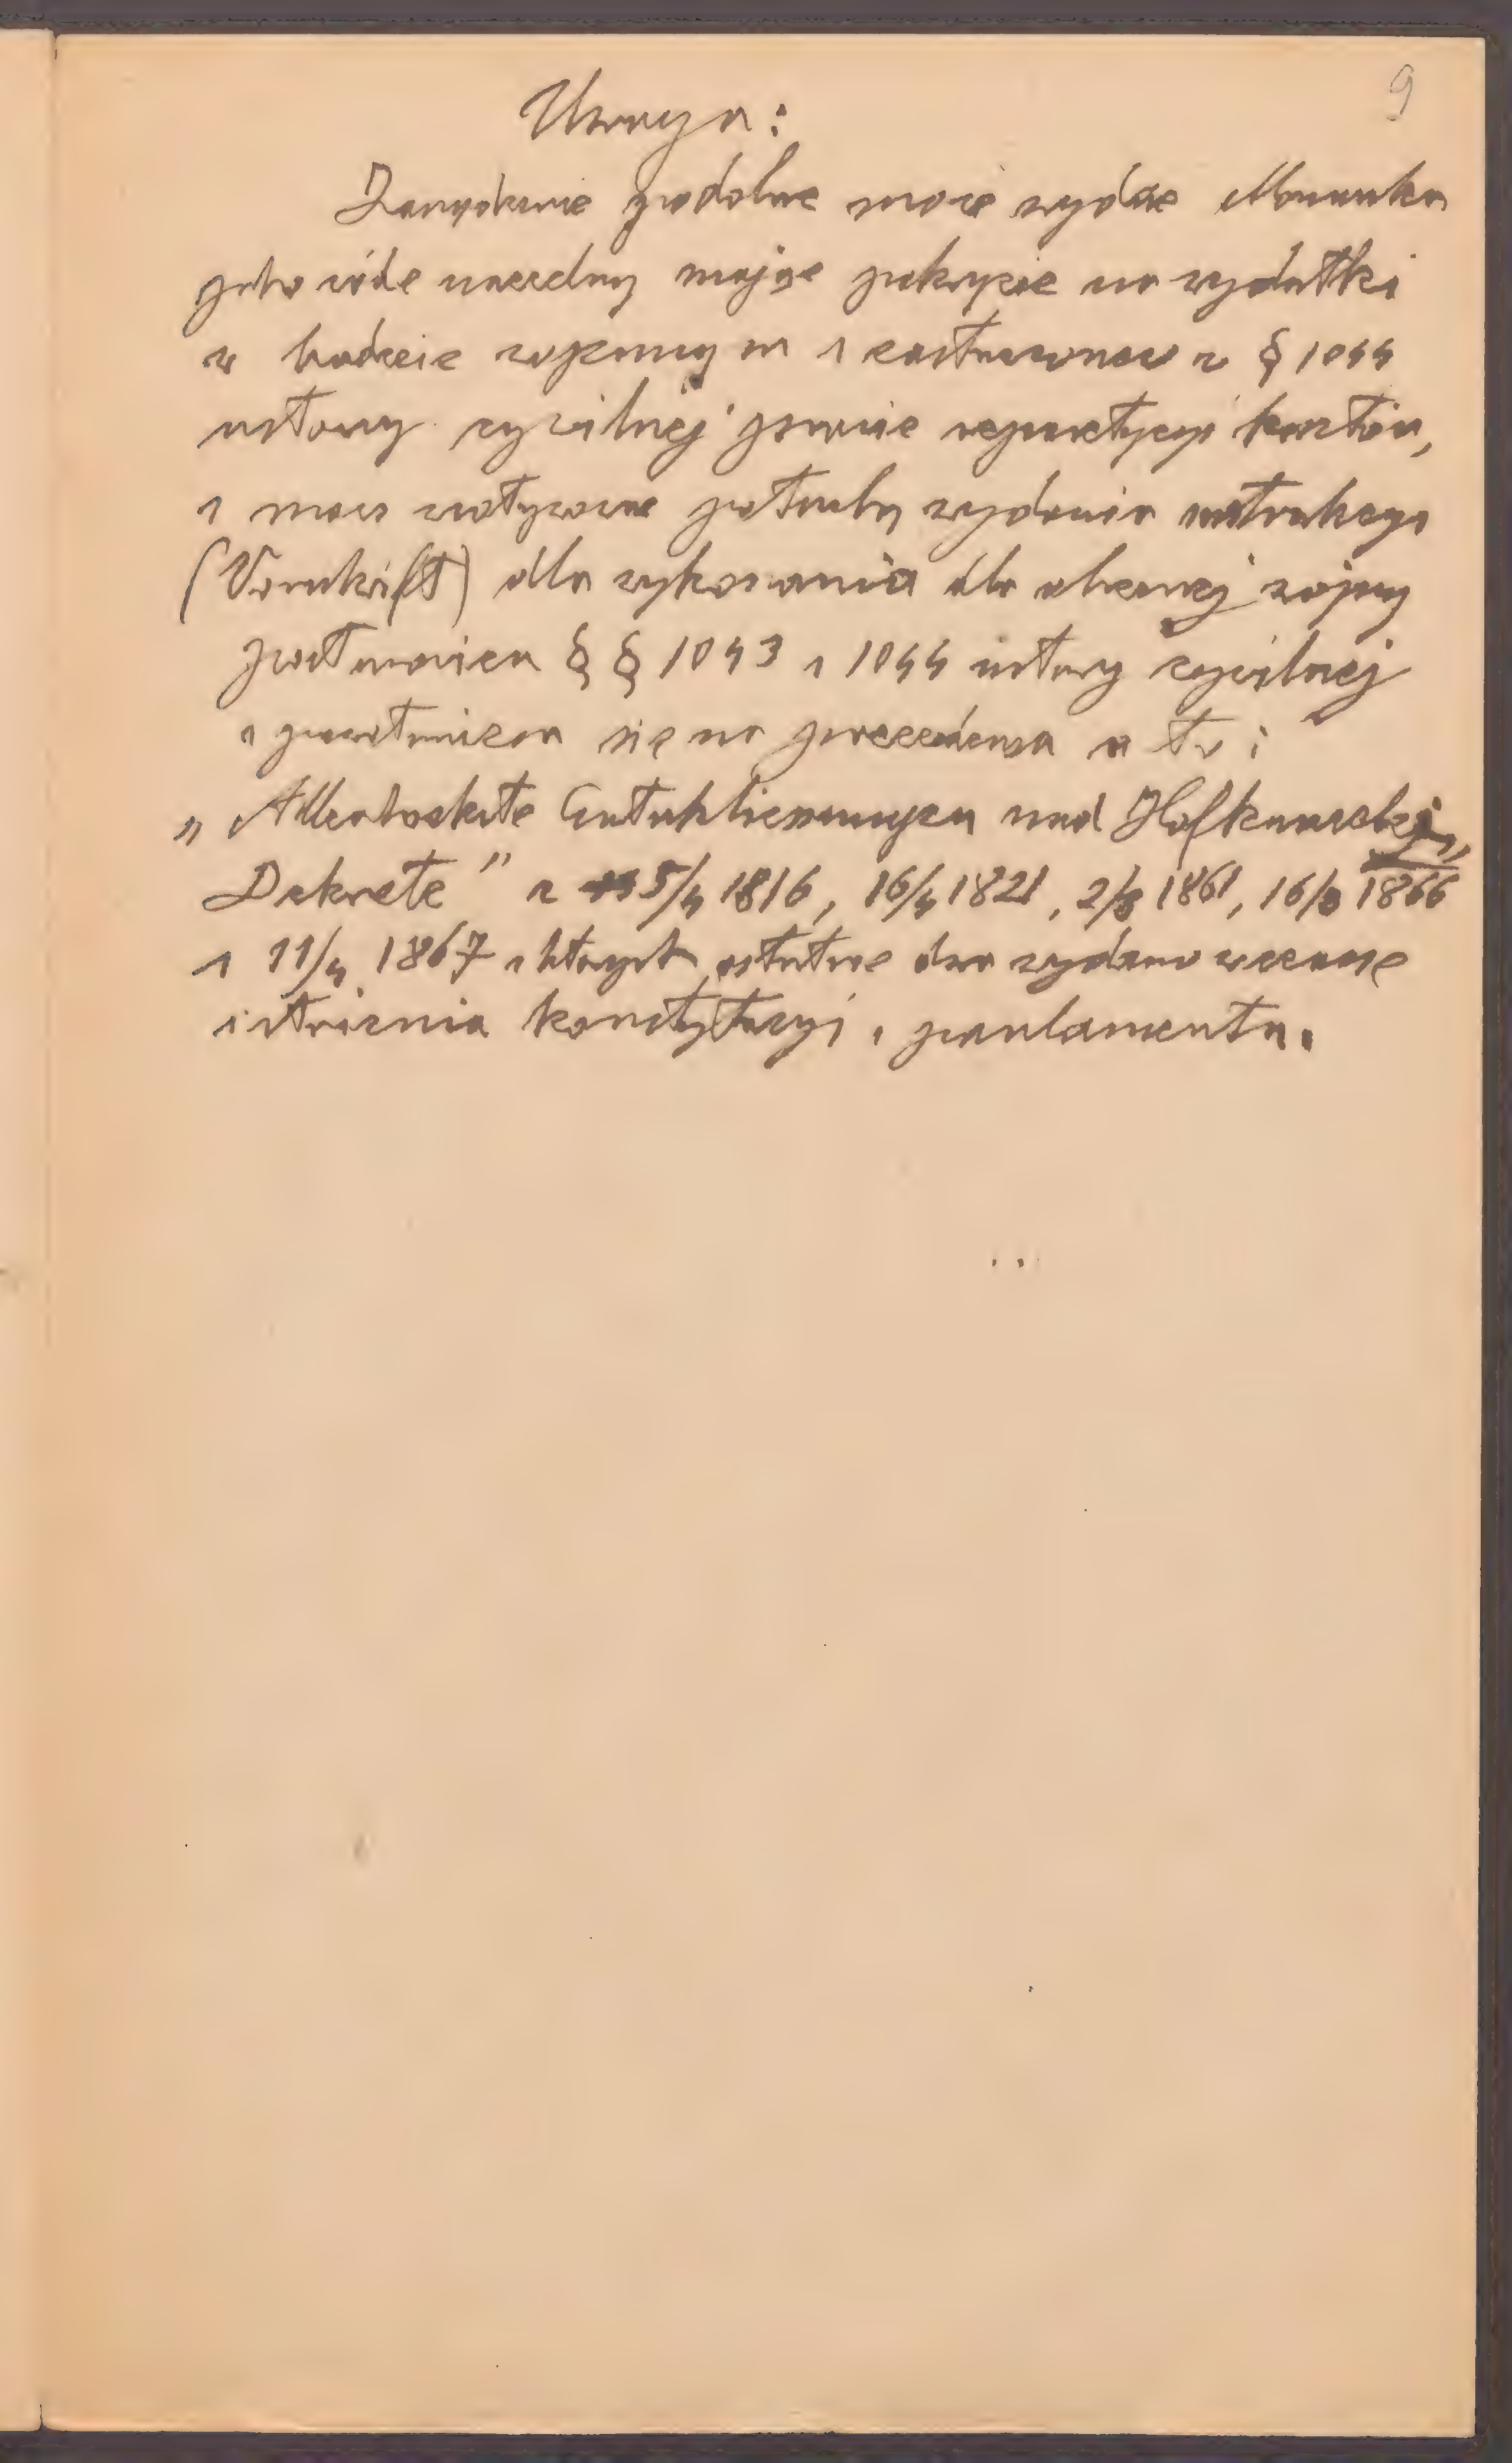 9
Uwaga:
Zarządzenie podobne może wydać Monarcha
jako wódz naczelny mając pokrycie na wydatki
w budżecie wojennym i zastrzeżone w § 1044
ustawy cywilnej prawie repartycyi kosztów,
i może motywować potrzebą wydania instrukcyi
(Vorschrift) dla wykonania dla obecnej wojny
postanowień §§ 1043 i 1044 ustawy cywilnej
i powołanie się na precedensa a to:
„Allerhöchste Entschliessungen und Hofkanzlei
Dekrete" z 5/4 1816, 16/4 1821, 2/8 1861, 16/8 1866
i 11/4 1867 z których ostatnie dwa wydano w czasie
istnienia konstytucyi i parlamentu.